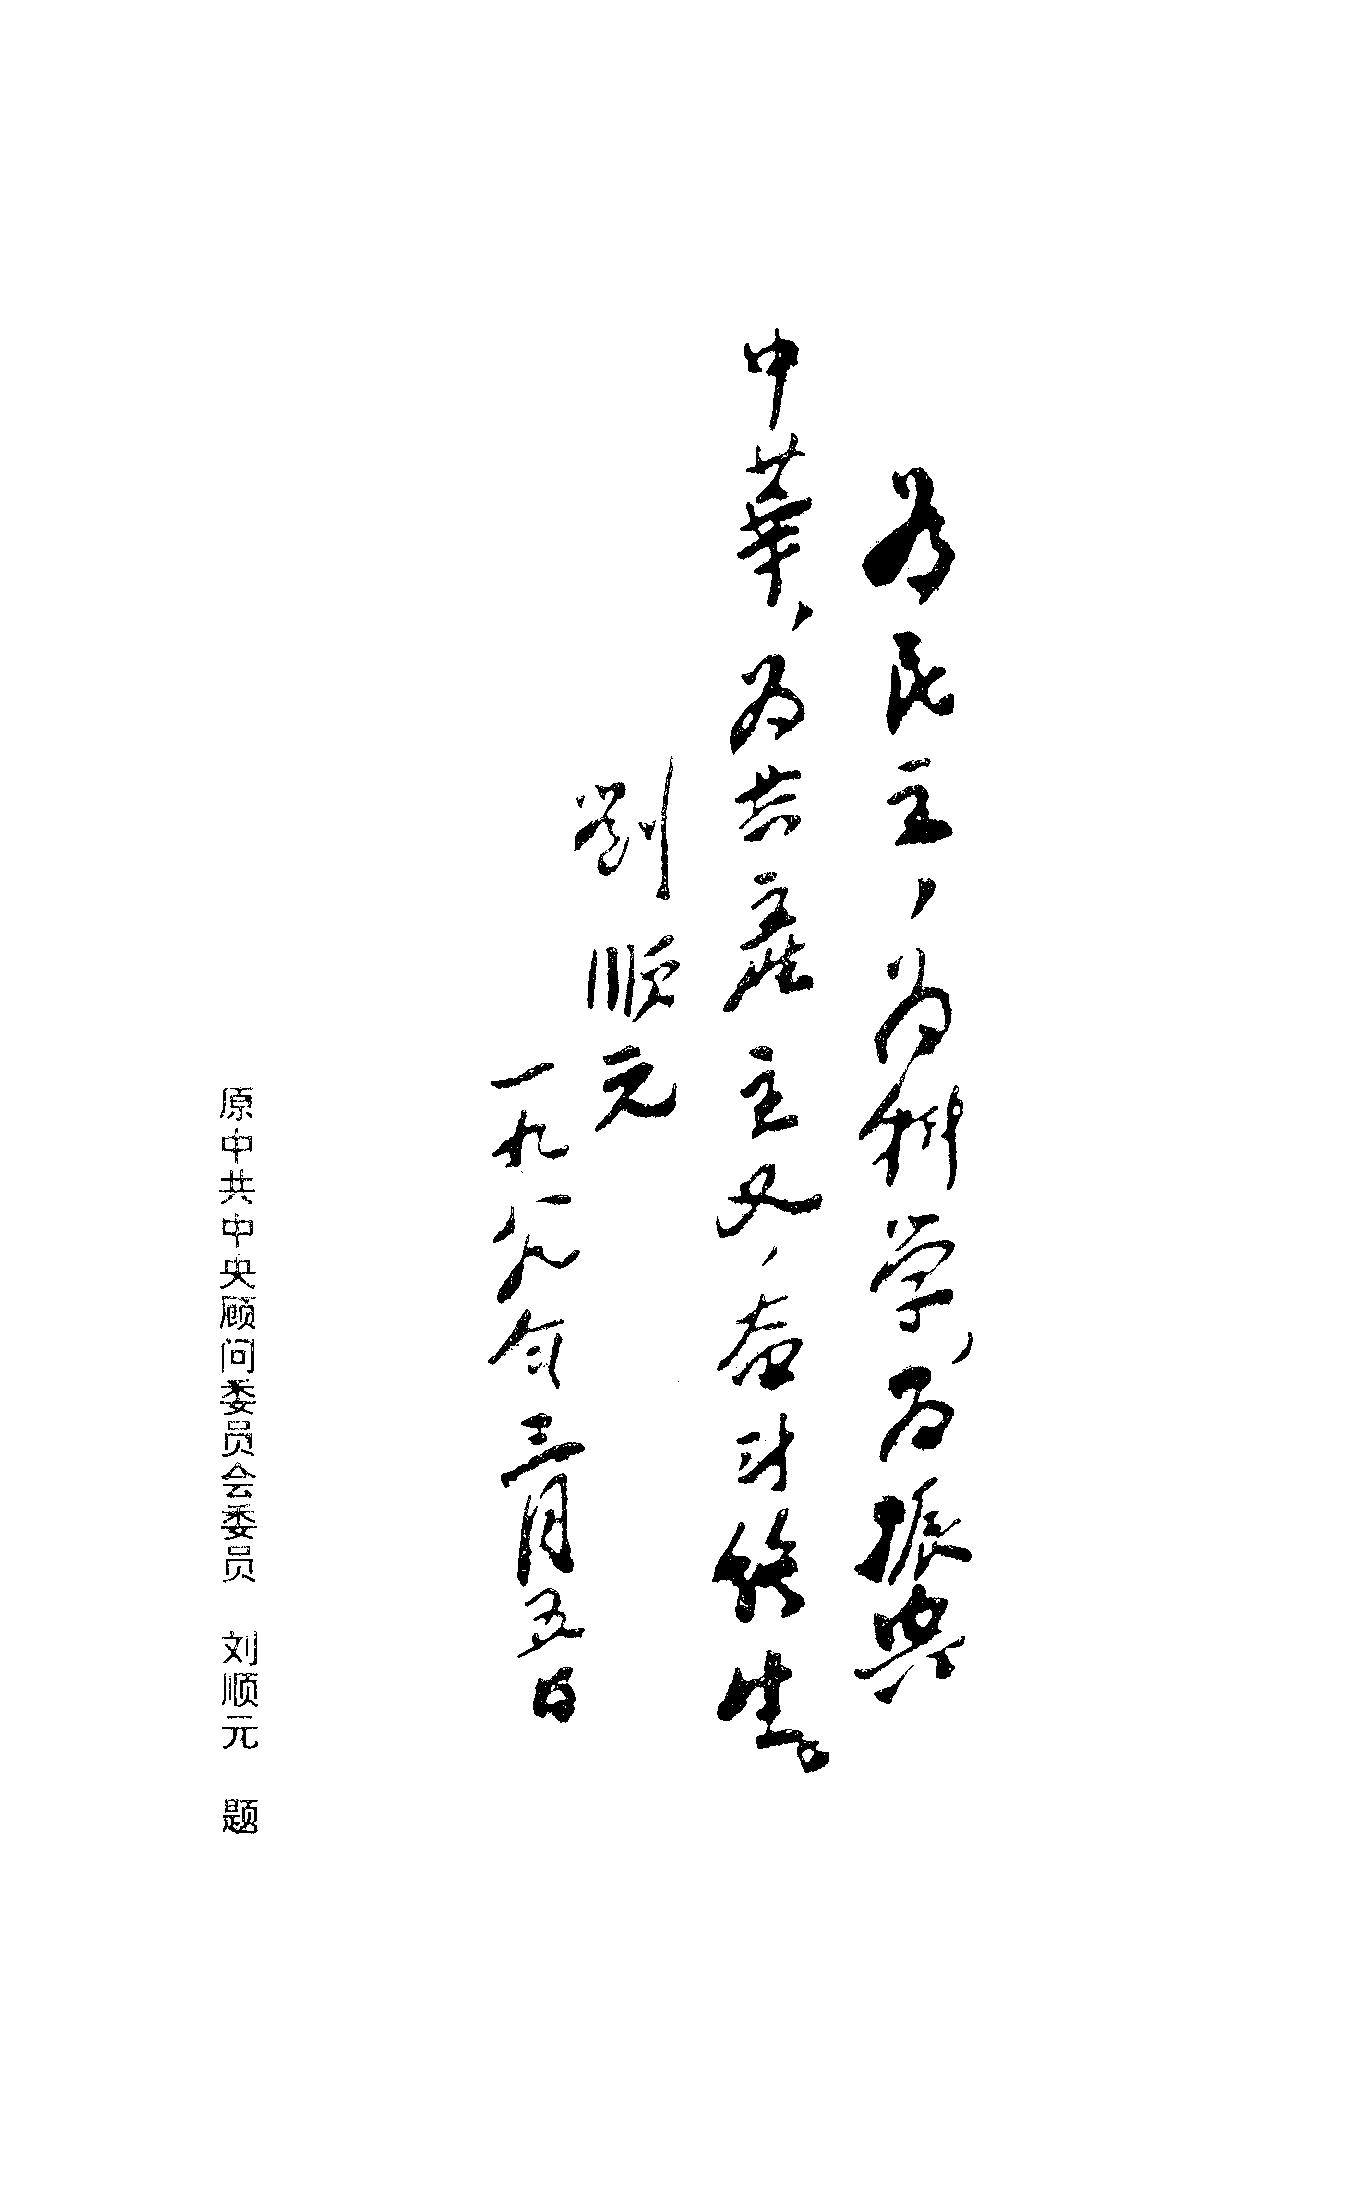 为民主，为科学，为振兴
中華，为共產主义，奋鬥终生。
劉順元
一九八九年三月五日
原中共中央顾问委员会委员　刘顺元　题